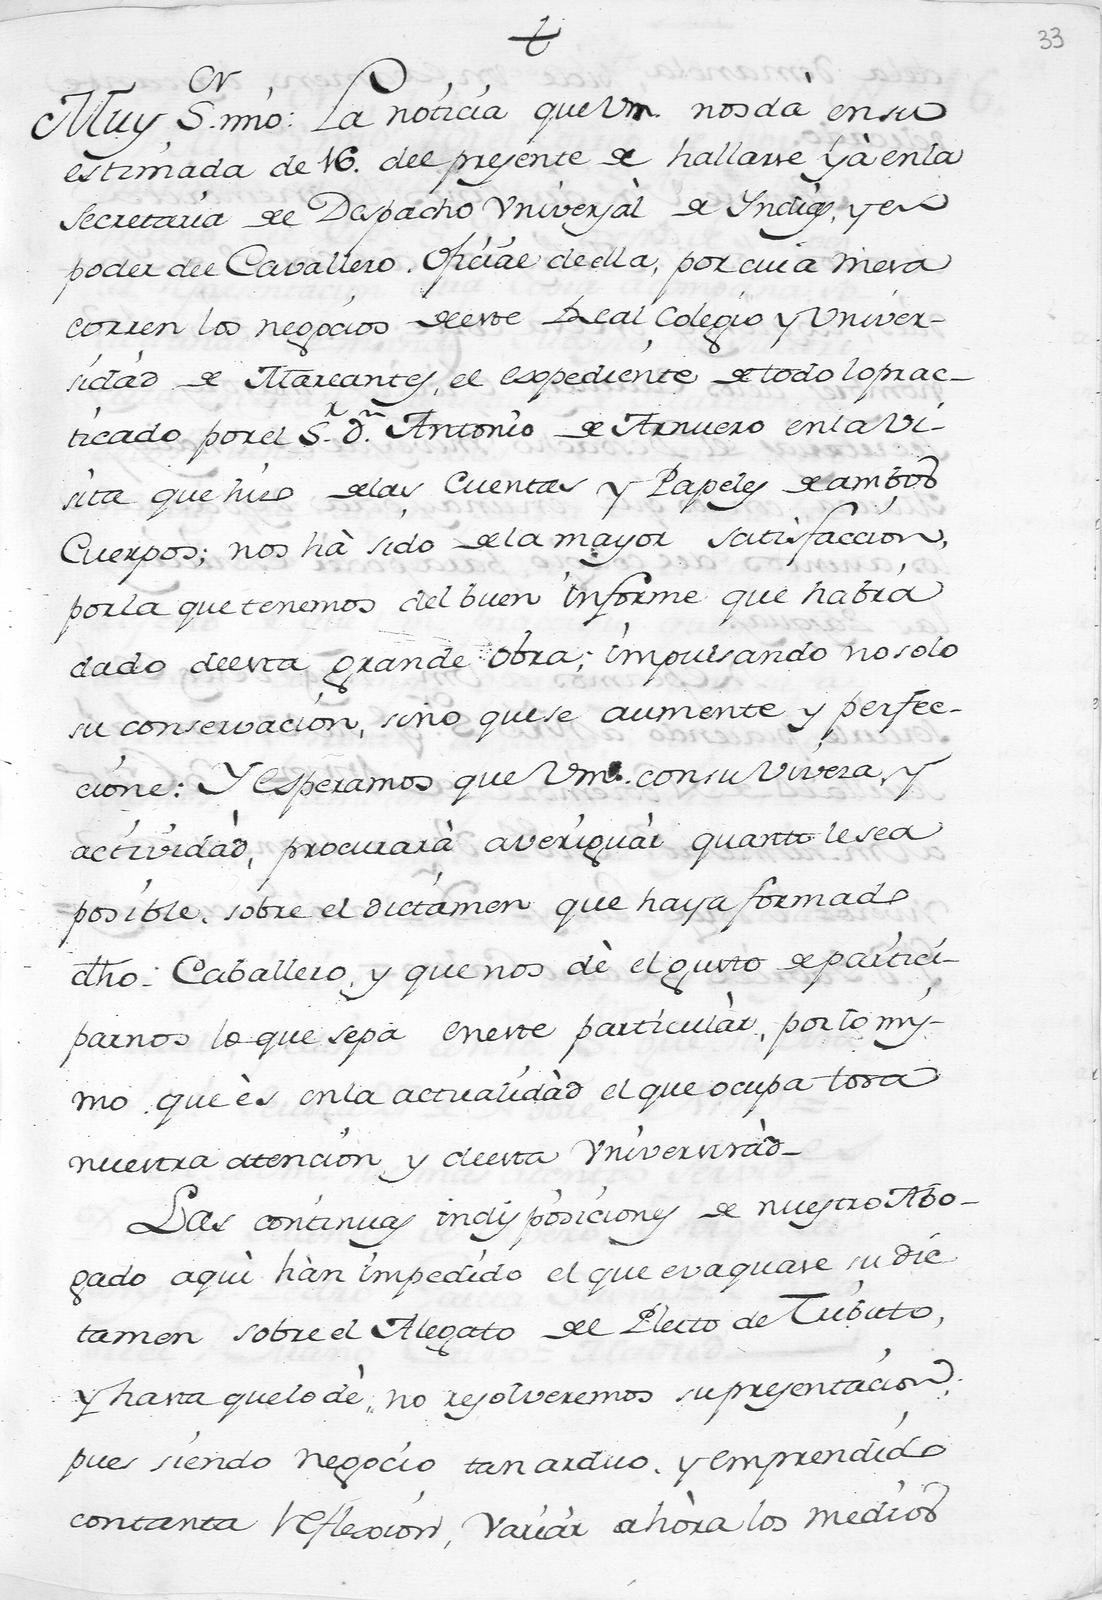 33
Muy Sor. mio: La noticia que Vm. nos dà en su
estimada de 16. del presente de hallarse yà en la
Secretaria del Despacho Vniversàl de Yndias, y en
poder del Cavallero Oficiàl de ella, por cuia mesa
corren los negocios de este Real Colegio y Univer-
sidad de Mareantes, el expediente de todo lo prac-
ticado por el Sr. Dn. Antonio de Arnuero en la Vi-
sita que hizo de las Cuentas y Papeles de ambos
Cuerpos; nos hà sido de la mayor satisfaccion,
por la que tenemos del buen informe que habrà
dado de esta grande obra; impulsando no solo
su conservacion, sino que se aumente y perfec-
cione: Y esperamos que Vm. con su Viveza, y
actividàd, procurarà averiguàr quanto le sea
posible, sobre el dictamen que haya formado
dho. Caballero, y que nos dè el gusto de partici-
parnos lo que sepa en este particulàr, por lo mis-
mo que ès en la actualidàd el que ocupa toda
nuestra atencion y de esta Vniversidàd_
Las continuas indisposiciones de nuestro Abo-
gado aquì hàn impedido el que evaquase su dic
tamen sobre el Alegato del Pleito de Tributo,
y hasta que lo dè, no resolveremos su presentacion;
pues siendo negocio tan arduo, y emprendido
con tanta reflexion, variàr ahòra los medios